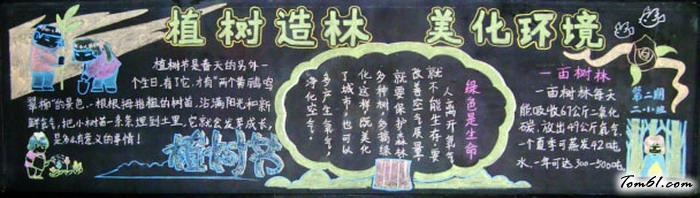 植树造林 美化环境
植树节是春天的另外一
个生日，有了它，才有“两个黄鹂鸣
翠柳”的景色.一根根拇指粗的树苗，沾满阳光和新
鲜空气，把小树苗一条条埋到土里，它就会发芽成长，
是多么有意义的事情！
植树节
绿色是生命
人离开氧气
就不能生存，要
改善空气质量
就要保护森林
多种树，多搞绿
化，这样既美化
了城市，也可以
多产生氧气，
净化空气。
一亩树林
一亩树林每天
能吸收67公斤二氧化
碳，放出49公斤氧气，
一个夏季可蒸发42吨
水，一年可达300-500吨
第二期
二.小班
Tom61.com